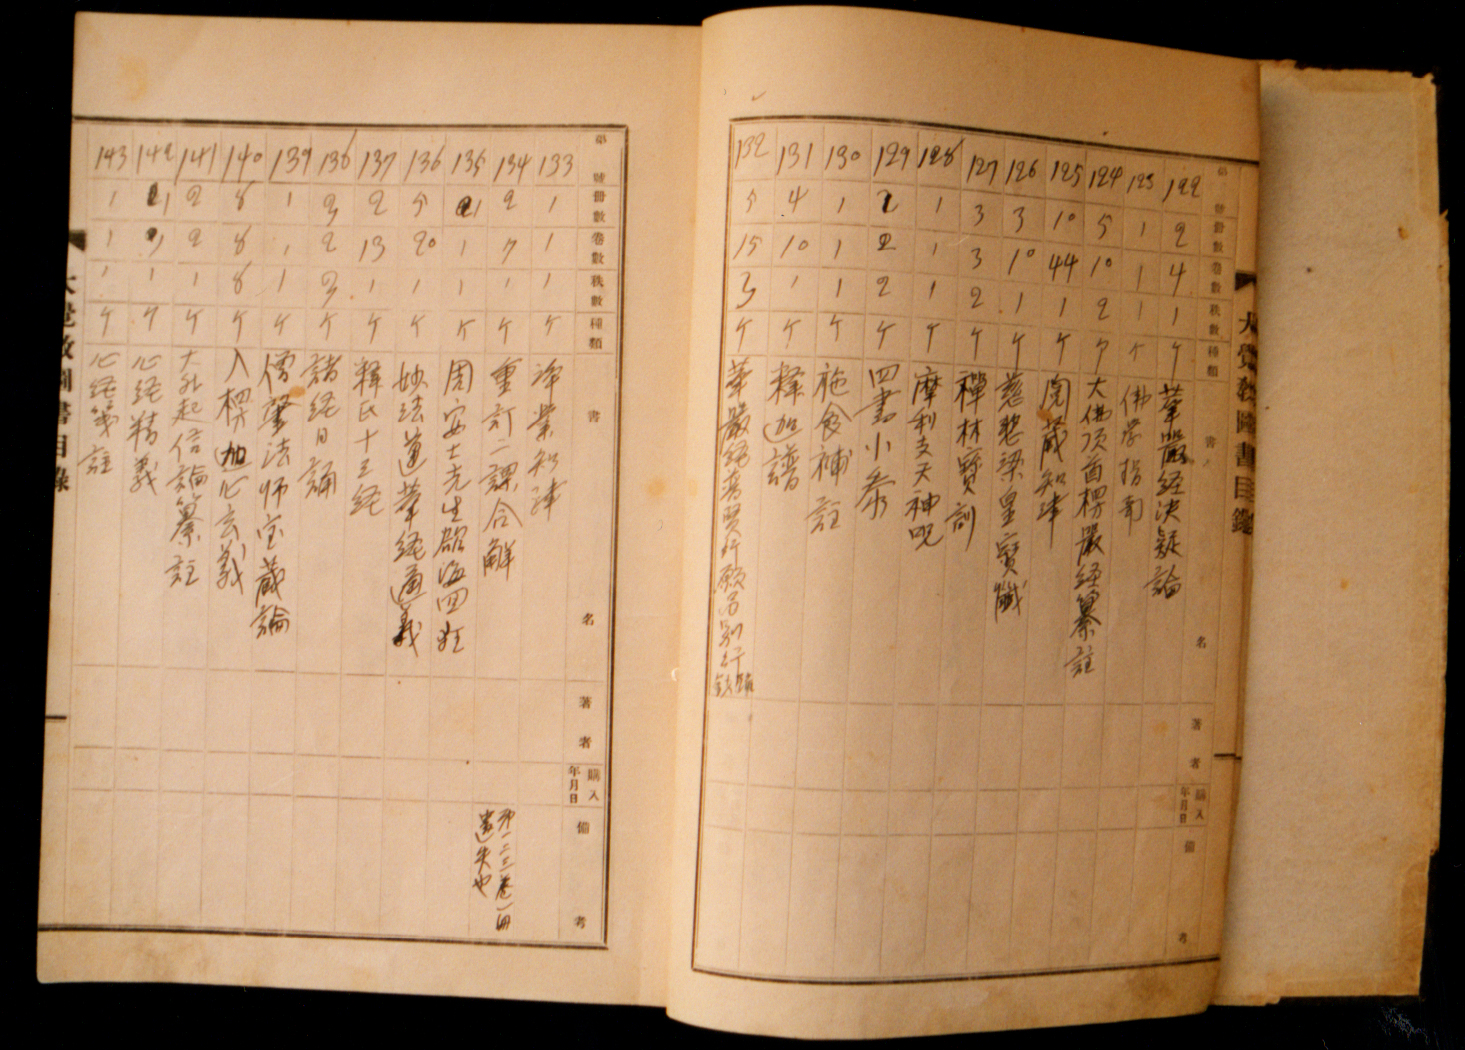 大覺敎圖書目錄
第號 冊數 卷數 秩數 種類 書名 著者 購入年月日 備考
122 2 4 1 ケ 華嚴經決疑論
123 1 1 1 ケ 佛學指南
124 5 10 2 ケ 大佛頂首楞嚴经纂註
125 10 44 1 ケ 閱藏知津
126 3 10 1 ケ 慈悲梁皇寶懺
127 3 3 2 ケ 禪林寶訓
128 1 1 1 ケ 摩利支天神呪
129 2 2 2 ケ 四書小参
130 1 1 1 ケ 施食補註
131 4 10 1 ケ 釋迦譜
132 5 15 3 ケ 華嚴经普賢行願品別行
第號 冊數 卷數 秩數 種類 書名 著者 購入年月日 備考
133 1 1 1 ケ 淨業知津
134 2 7 1 ケ 重訂二課合解 第一二三卷一冊遺失也
135 1 1 1 ケ 周安士先生 海四
136 5 20 1 ケ 妙法蓮華經通義
137 2 13 1 ケ 釋氏十三经
138 2 2 2 ケ 諸经日誦
139 1 1 1 ケ 僧肇法师宝藏論
140 8 8 8 ケ 入楞迦心玄義
141 2 2 1 ケ 大乘起信論纂註
142 1 1 1 ケ 心経精義
143 1 1 1 ケ 心経箋註
大覺敎圖書目錄